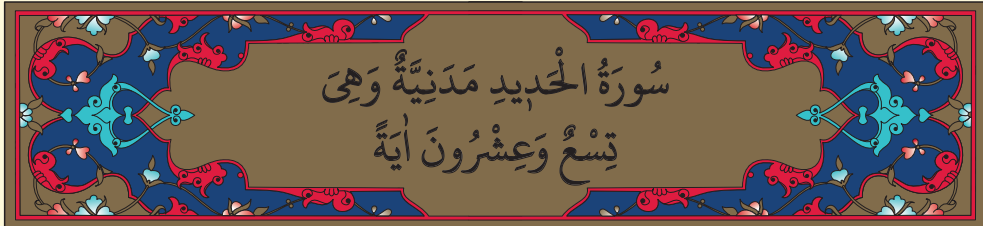 سُورَةُ الْحَد۪يدِ مَدَنِيَّةٌ وَهِىَ
تِسْعٌ وَعِشْرُونَ اٰيَةً